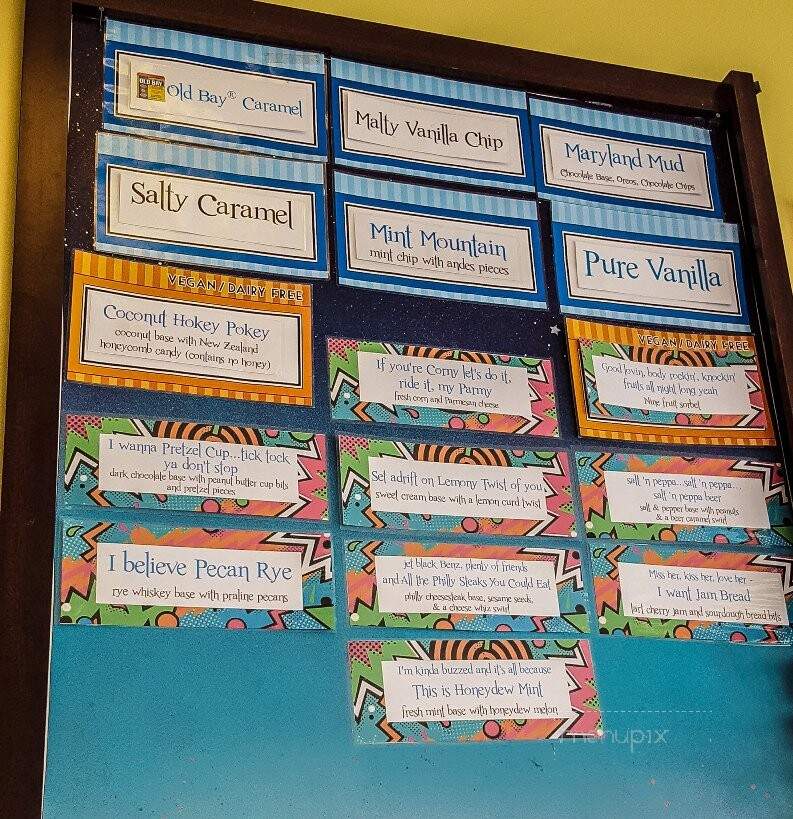 OLD BAY
Old Bay® Caramel
Malty Vanilla Chip
Maryland Mud
Chocolate Base, Oreos, Chocolate Chips
Salty Caramel
Mint Mountain
mint chip with andes pieces
Pure Vanilla
VEGAN/DAIRY FREE
Coconut Hokey Pokey
coconut base with New Zealand
honeycomb candy (contains no honey)
If you're Corny let's do it,
ride it, my Parmy
fresh corn and Parmesan cheese
VEGAN/DAIRY FREE
Good lovin, body rockin', knockin'
fruits all night long yeah
Nine fruit sorbet
I wanna Pretzel Cup...tick tock
ya don't stop
dark chocolate base with peanut butter cup bits
and pretzel pieces
Set adrift on Lemony Twist of you
sweet cream base with a lemon curd twist
salt 'n peppa...salt 'n peppa...
salt 'n peppa beer
salt & pepper base with peanuts
& a beer caramel swirl
I believe Pecan Rye
rye whiskey base with praline pecans
jet black Benz, plenty of friends
and All the Philly Steaks You Could Eat
philly cheesesteak base, sesame seeds,
& a cheese whiz swirl
Miss her, kiss her, love her -
I want Jam Bread
tart cherry jam and sourdough bread bits
I'm kinda buzzed and it's all because
This is Honeydew Mint
fresh mint base with honeydew melon
menupix